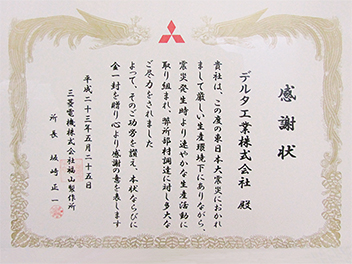 感謝状
デルタ工業株式会社 殿
貴社は、この度の東日本大震災におかれ
まして厳しい生産環境下にありながら、
震災発生時より速やかな生産活動に
取り組まれ、弊所部材調達に対し多大な
ご尽力をされました
よって、そのご功労を讃え、本状ならびに
金一封を贈り心より感謝の意を表します
平成二十三年五月二十五日
三菱電機株式会社福山製作所
所長 坂﨑正一